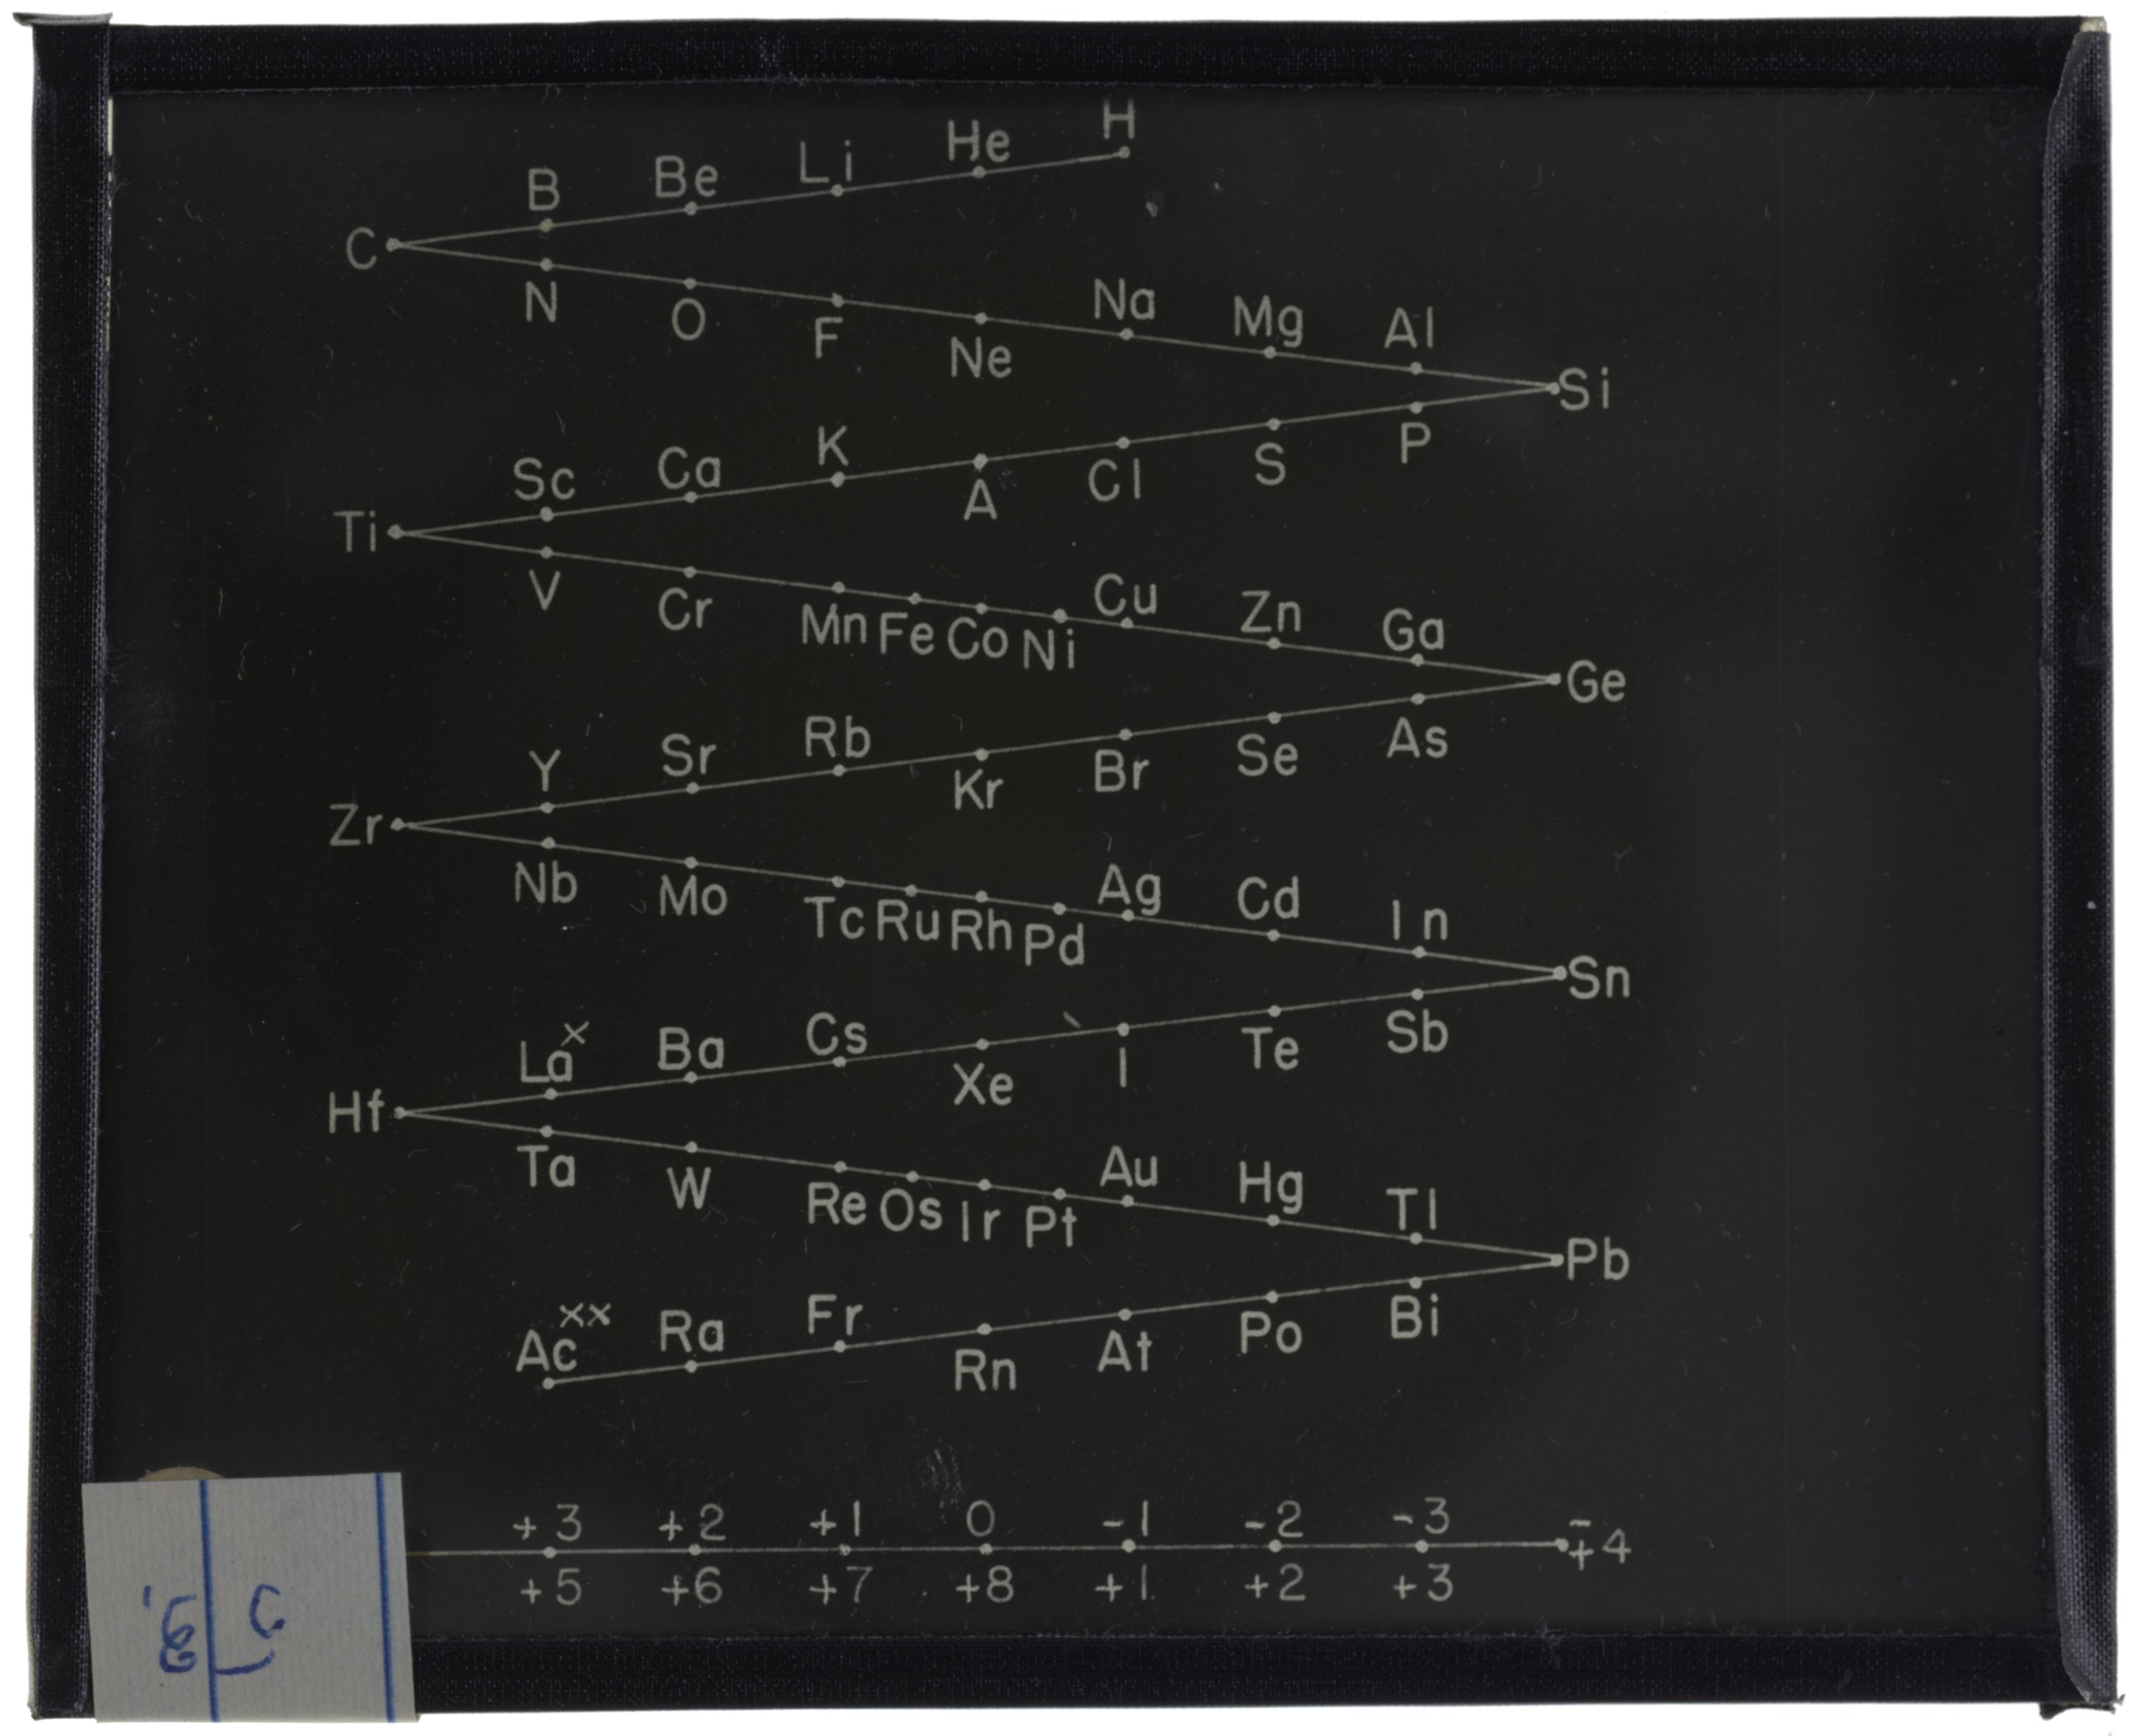 H
He
Li
Be
B
C
N
O
F
Ne
Na
Mg
Al
Si
P
S
Cl
A
K
Ca
Sc
Ti
V
Cr
Mn Fe Co Ni
Cu
Zn
Ga
Ge
As
Se
Br
Kr
Rb
Sr
Y
Zr
Nb
Mo
Tc Ru Rh Pd
Ag
Cd
In
Sn
Sb
Te
I
Xe
Cs
Ba
La x
Hf
Ta
W
Re Os Ir Pt
Au
Hg
Tl
Pb
Bi
Po
At
Rn
Fr
Ra
Ac xx
+3 +2 +1 0 -1 -2 -3 ∓4
+5 +6 +7 +8 +1 +2 +3